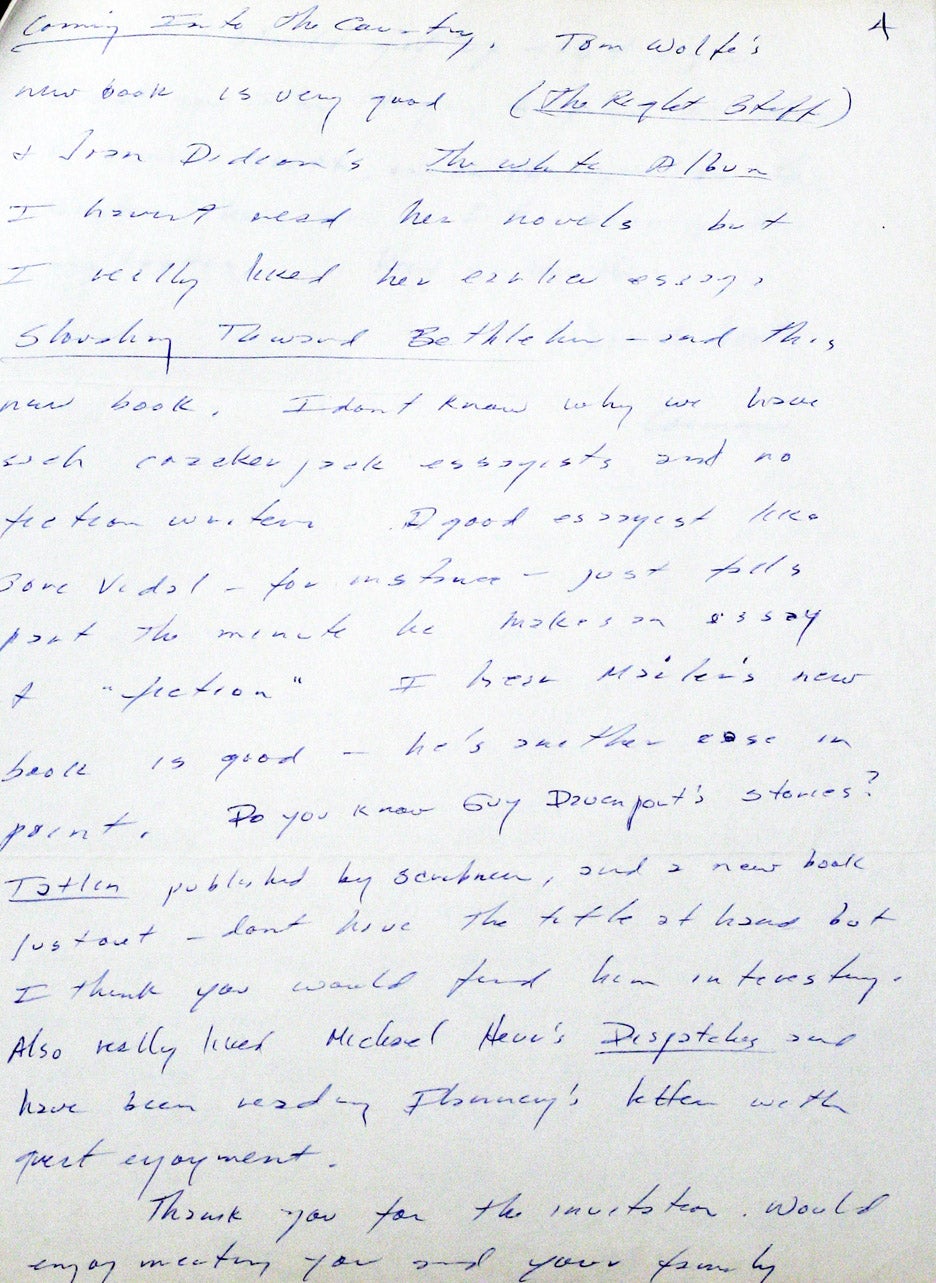 4
Coming Into the Country. Tom Wolfe's
new book is very good (The Right Stuff)
+ Joan Didion's The White Album
I havent read her novels but
I really liked her earlier essays
Slouching Toward Bethlehem – and this
new book. I dont know why we have
such crackerjack essayists and no
fiction writers A good essayist like
Gore Vidal – for instance – just falls
part the minute he makes an essay
"fiction" I hear Mailer's new
book is good – he's another case in
point. Do you know Guy Davenport's stories?
Tatlin published by Scribner, and a new book
just out – dont have the title at hand but
I think you would find him interesting.
Also really liked Michael Herr's Dispatches and
have been reading Flannery's letters with
great enjoyment.
Thank you for the invitation. Would
enjoy meeting you and your family